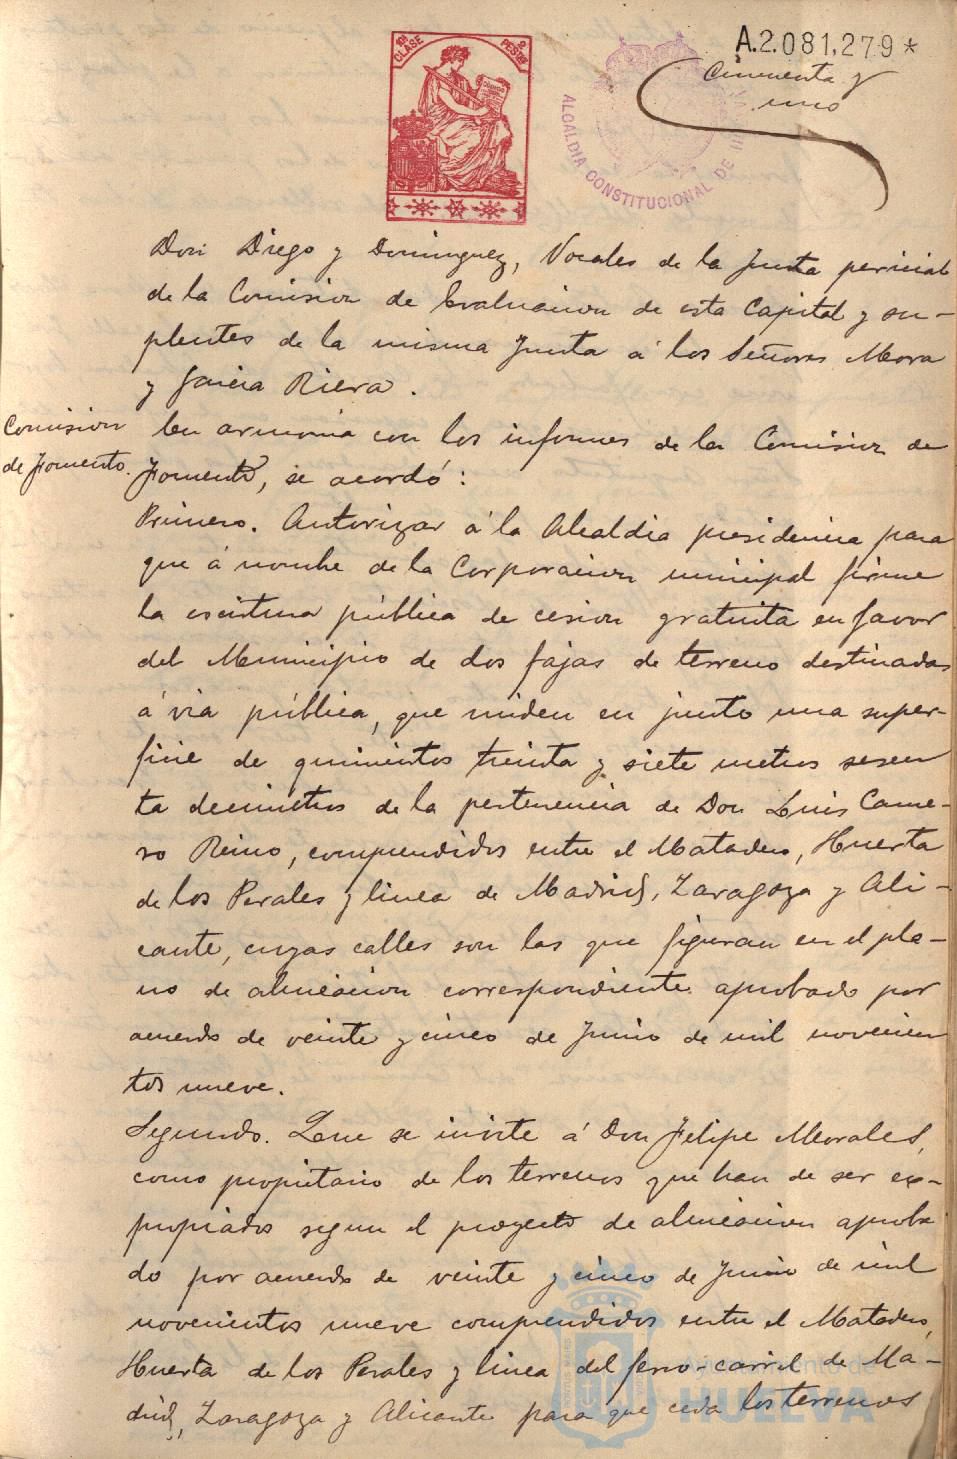 10ª CLASE 2 PESETAS
A.2.081,279*
Cincuenta y
uno
ALCALDIA CONSTITUCIONAL DE
Don Diego y Dominguez, Vocales de la Junta pericial
de la Comision de Evaluacion de esta Capital y su-
plentes de la misma Junta á los Señores Mora
y Garcia Riera.
Comision
de Fomento.
En armonia con los informes de la Comision de
Fomento, se acordó:
Primero. Autorizar á la Alcaldia presidencia para
que á nombre de la Corporacion municipal firme
la escritura pública de cesion gratuita en favor
del Municipio de dos fajas de terreno destinadas
á via pública, que miden en junto una super-
ficie de quinientos treinta y siete metros sesen
ta decimetros de la pertenencia de Don Luis Came-
ro Reino, comprendidos entre el Matadero, Huerta
de los Perales y linea de Madrid, Zaragoza y Ali-
cante, cuyas calles son las que figuran en el pla-
no de alineacion correspondiente aprobado por
acuerdo de veinte y cinco de Junio de mil novecien
tos nueve.
Segundo. Que se invite á Don Felipe Morales,
como propietario de los terrenos que han de ser ex-
propiados segun el proyecto de alineacion aproba
do por acuerdo de veinte y cinco de Junio de mil
novecientos nueve comprendidos entre el Matadero,
Huerta de los Perales y linea del ferro-carril de Ma-
drid, Zaragoza y Alicante para que ceda los terrenos
Ayuntamiento de
HUELVA